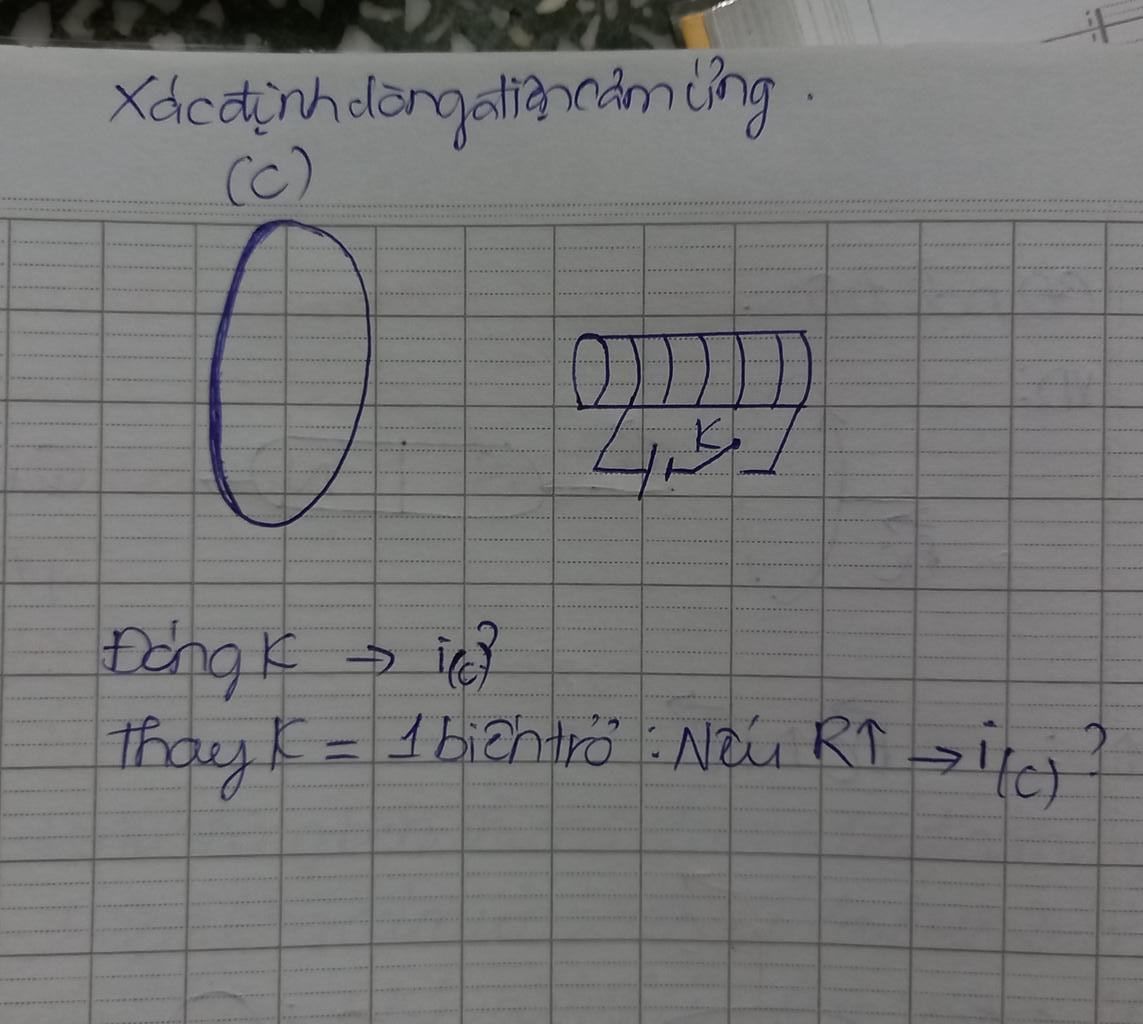 Xác định dòng điện cảm ứng.
(C)
K
Đóng K → i(c)?
Thay K = 1 biến trở : Nếu R↑ → i(c)?